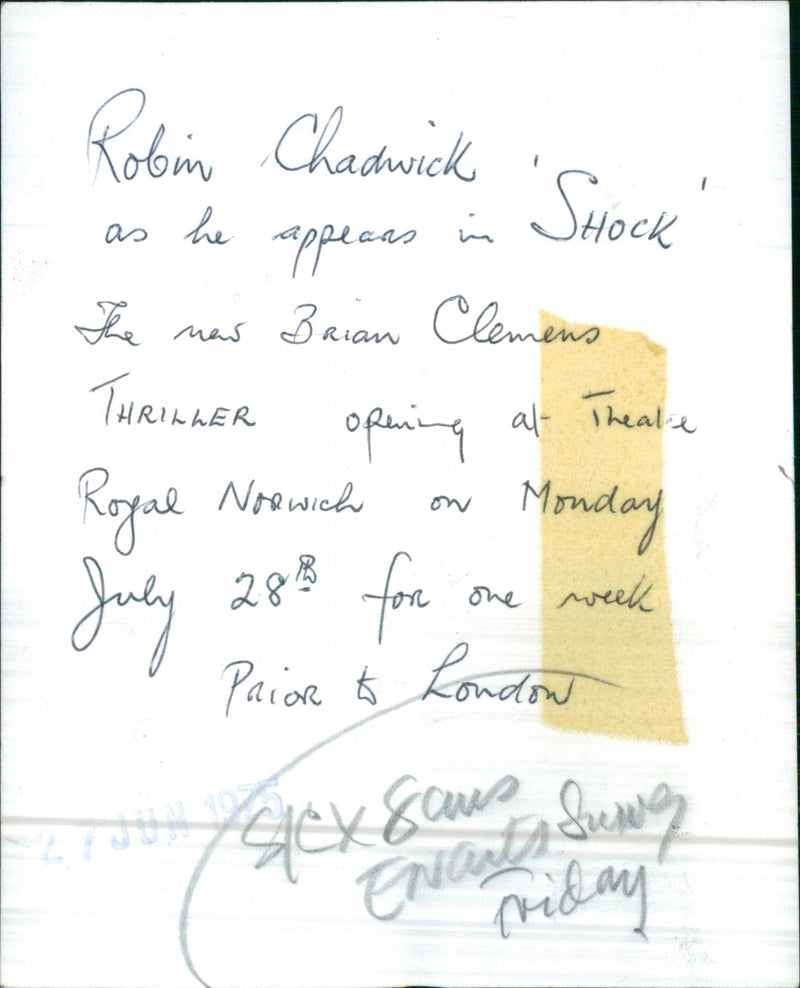 Robin Chadwick
as he appears in 'SHOCK'
The new Brian Clemens
THRILLER opening at Theatre
Royal Norwich on Monday
July 28th for one week
Prior to London
27 JUN 1975
S/C X 8cms
Friday